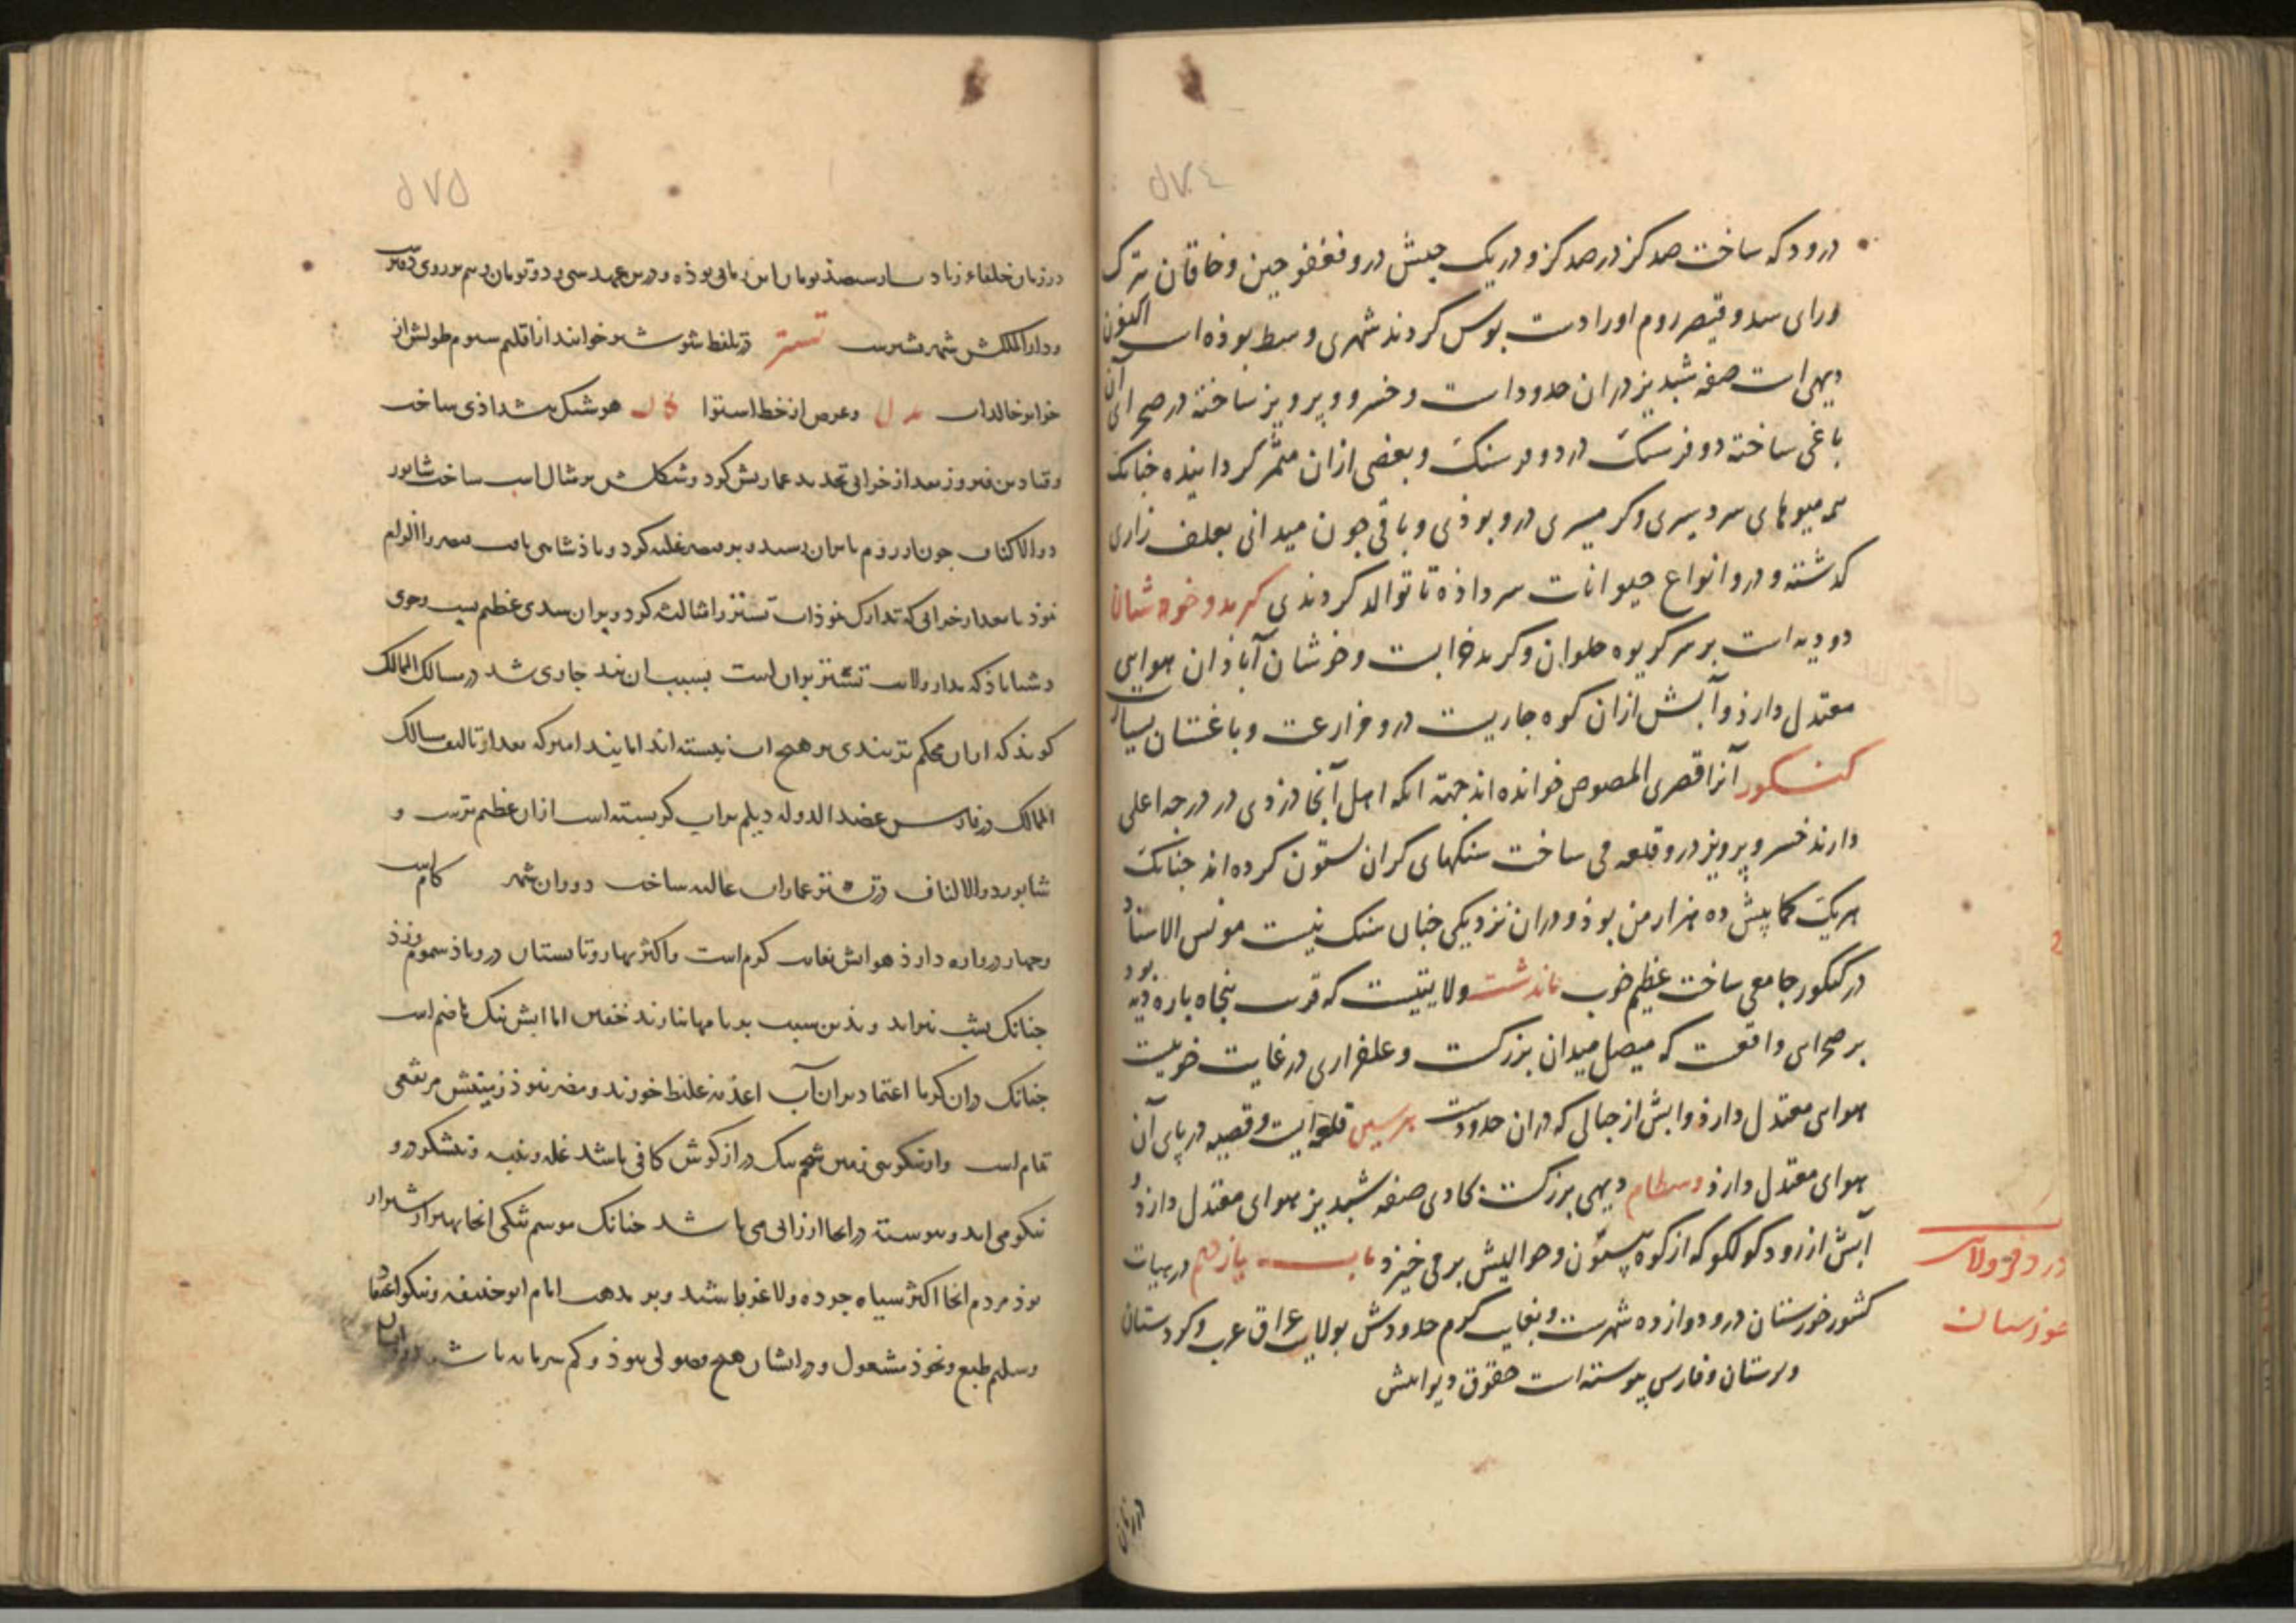 ٥٧٤
درو دکه ساخت صد کز در صد کز و در یک جیش درو فغفور چین و خاقان ترک
ورای سند و قیصر روم اورا دست بوس کردند شهری وسط بوذه است اکنون
دیهی است صفه شبدیز دران حدود است و خسرو پرویز ساخته در صحرای آن
باغی ساخته دو فرسنک در دو فرسنک و بعضی ازان مثمر کردانیده جنانک
میوهای سردسیری و کرمسیری درو بوذی و باقی جون میدانی بعلف زاری
کذشته و درو انواع حیوانات سر داذه تا توالد کردندی کرند و خوشان
دو دیه است بر سر کریوه حلوان و کرند خرابست و خوشان آباذان هوایی
معتدل دارذ و آبش ازان کوه جاریست درو مزارعت و باغستان بسیار
کنکور آنرا قصر المصوص خوانده اند جهة آنکه اهل آنجا دزدی در درجه اعلی
دارند خسرو پرویز درو قلعه می ساخت سنکهای کران بستون کرده اند جنانک
هریک کما پیش ده هزار من بوذ و دران نزدیکی جنان سنک نیست مونس الاستاد
در کنکور جامعی ساخت عظیم خوب ماندشت ولایتیست که قرب پنجاه پاره دیه بود
بر صحرایی واقعت که متصل میدان بزرکست و علفزاری در غایت خوبیست
هوای معتدل دارذ و ابش از جبالی که دران حدودست هرسین قلعه ایست و قصبه در پای آن
هوای معتدل دارذ وسطام دیهی بزرکست محاذی صفه شبدیز هوای معتدل دارذ و
آبش از رود کولکو که از کوه بیستون و حوالیش برمی خیزد باب یازدهم در بیات
کشور خوزستان درو دوازده شهرست و بغایت کرم حدودش بولایت عراق عرب و کردستان
و لرستان و فارس پیوسته است حقوق دیوانیش
در ذکر ولایت
خوزستان
در زمان
٥٧٥
در زمان خلفاء زیادت از سیصد تومان این زمانی بوذه و درین عهد سی و دو تومان و سیم بر روی دفتر
و دار الملکش شهر تسترست تستر در تلفظ شوشتر خوانند از اقلیم سیوم طولش از
جزایر خالدات و عرض از خط استوا هوشنک پیشداذی ساخت
و قباد بن فیروز بعد از خرابی تجدید عمارتش کرد و شکلش بر مثال اسب ساخت شابور
ذو الاکتاف جون از روم بایران رسید و بر قیصر غلبه کرد و باذشاهی یافت قیصر را الزام
نموذ تا بعد از خرابی که تدارک نموذ آب تستر را ثالثه کرد و بران سدی عظیم ببست و جوی
دشتاباذ که مدار ولایت تستر بران است بسبب ان بند جاری شد در مسالک الممالک
کویذ که ازان محکم تر بندی بر هیچ اب نبسته اند اما بند امیر که بعد از تالیف مسالک
الممالک در فارس عضد الدوله دیلم بر اب کر بسته است ازان عظیم ترست و
شابور ذو الاکتاف در تستر عمارات عالیه ساخت دور ان شهر کام است
و جهار دروازه دارذ هوایش بغایت کرم است و اکثر بهار و تابستان درو باذ سموم وزذ
جنانک بشب نیز اید و بذین سبب بر بامها نیارند خفتن اما ابش نیک هاضم است
جنانک دران کرما اعتماد بران آب اغذیه غلیظ خورند و مضر نبوذ زمینش مرتفعی
تمام است و از نیکویی زمین شخم بیک درازکوش کافی باشد غله و پنبه و نیشکر درو
نیکو می اید و پیوسته در انجا ارزانی می باشد جنانک موسم تنکی انجا بهتر از شیراز
بوذ مردم انجا اکثر سیاه جرده و لاغر باشند و بر مذهب امام ابو حنیفه و نیکو اعتقاد
و سلیم طبع و بخوذ مشغول و در ایشان هیچ فضولی نبوذ و کم سرمایه باشند